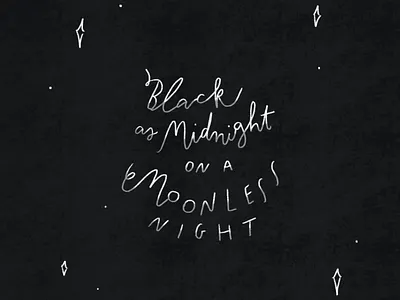 Black
as Midnight
ON A
MOONLESS
NIGHT